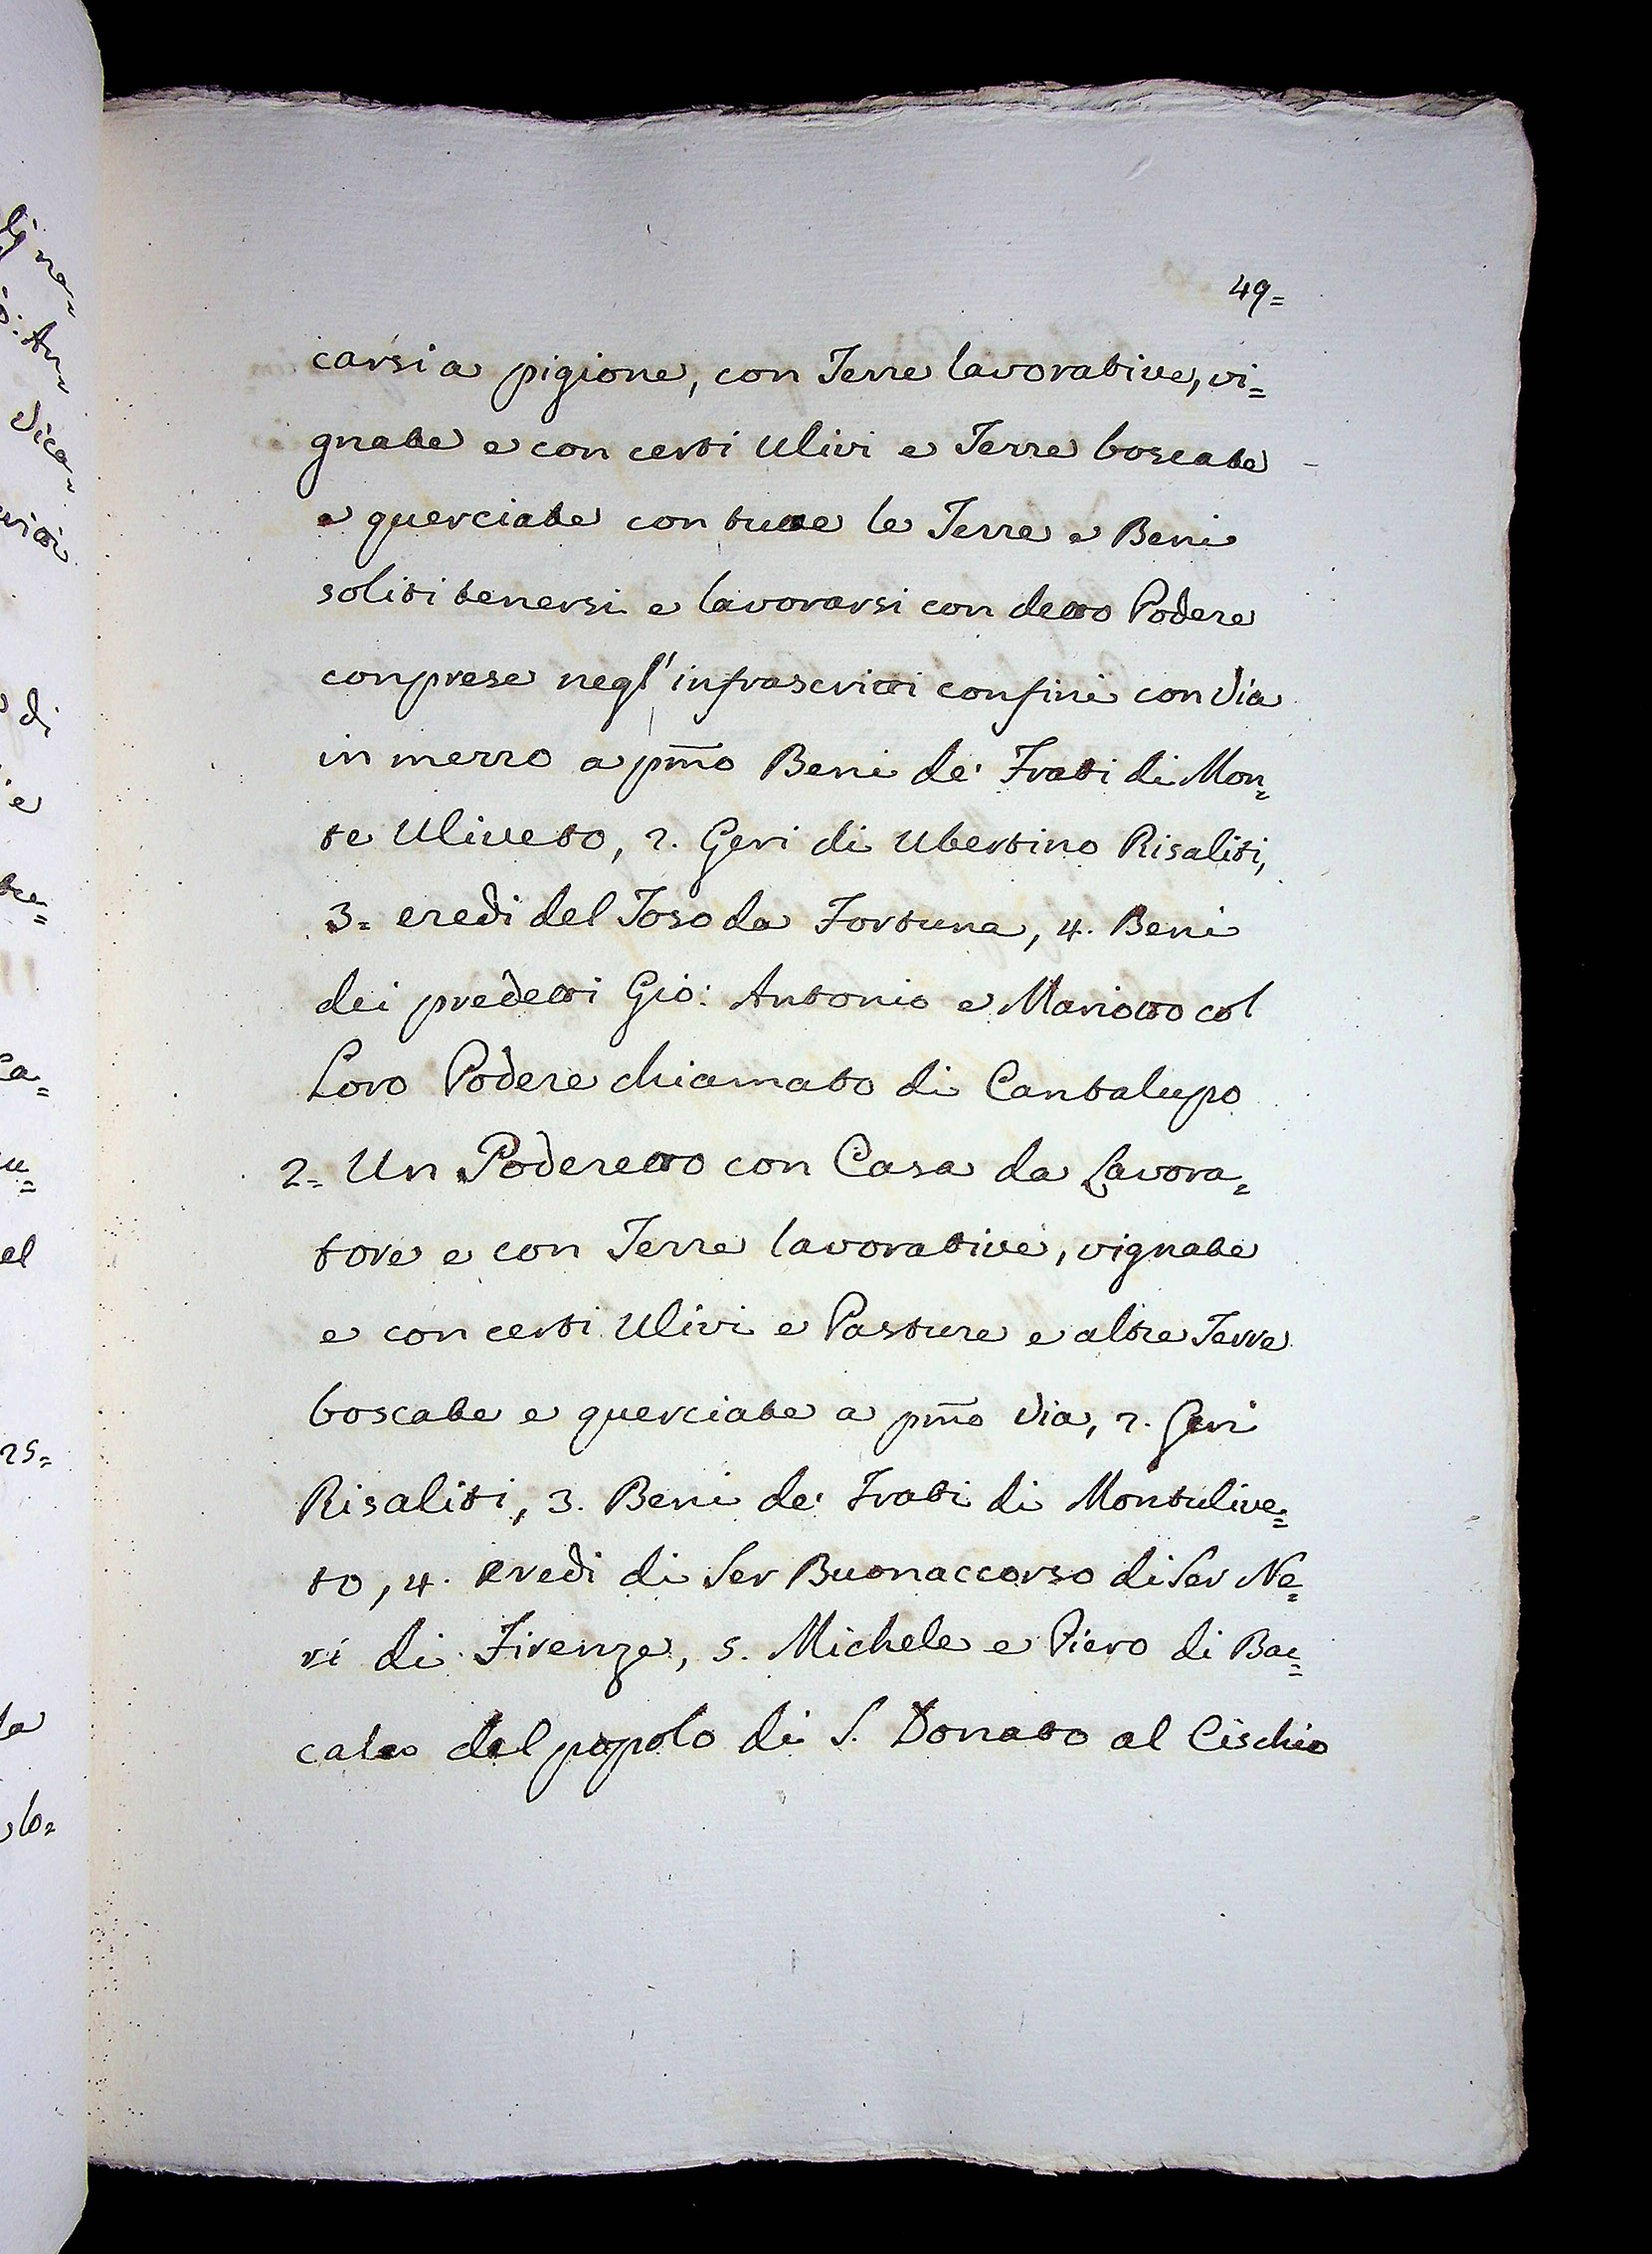 49=
carsi a pigione, con Terre lavorative, vi=
gnate e con certi Ulivi e Terre boscate
e querciate con tutte le Terre e Beni
soliti tenersi e lavorarsi con detto Podere
conprese negl' infrascritti confini con Via
in mezzo a pm̃o Beni de' Frati di Mon=
te Uliveto, 2. Geri di Ubertino Risaliti,
3= eredi del Toso da Fortuna, 4. Beni
dei predetti Gio: Antonio e Mariotto col
Loro Podere chiamato di Cantalupo
2= Un Poderetto con Casa da Lavora=
tore e con Terre lavorative, vignate
e con certi Ulivi e Pasture e altre Terre
boscate e querciate a pm̃o Via, 2. Geri
Risaliti, 3. Beni de' Frati di Montulive=
to, 4. eredi di Ser Buonaccorso di Ser Ne=
ri di Firenze, 5. Michele e Piero di Bac=
cale del popolo di S. Donato al Cischio